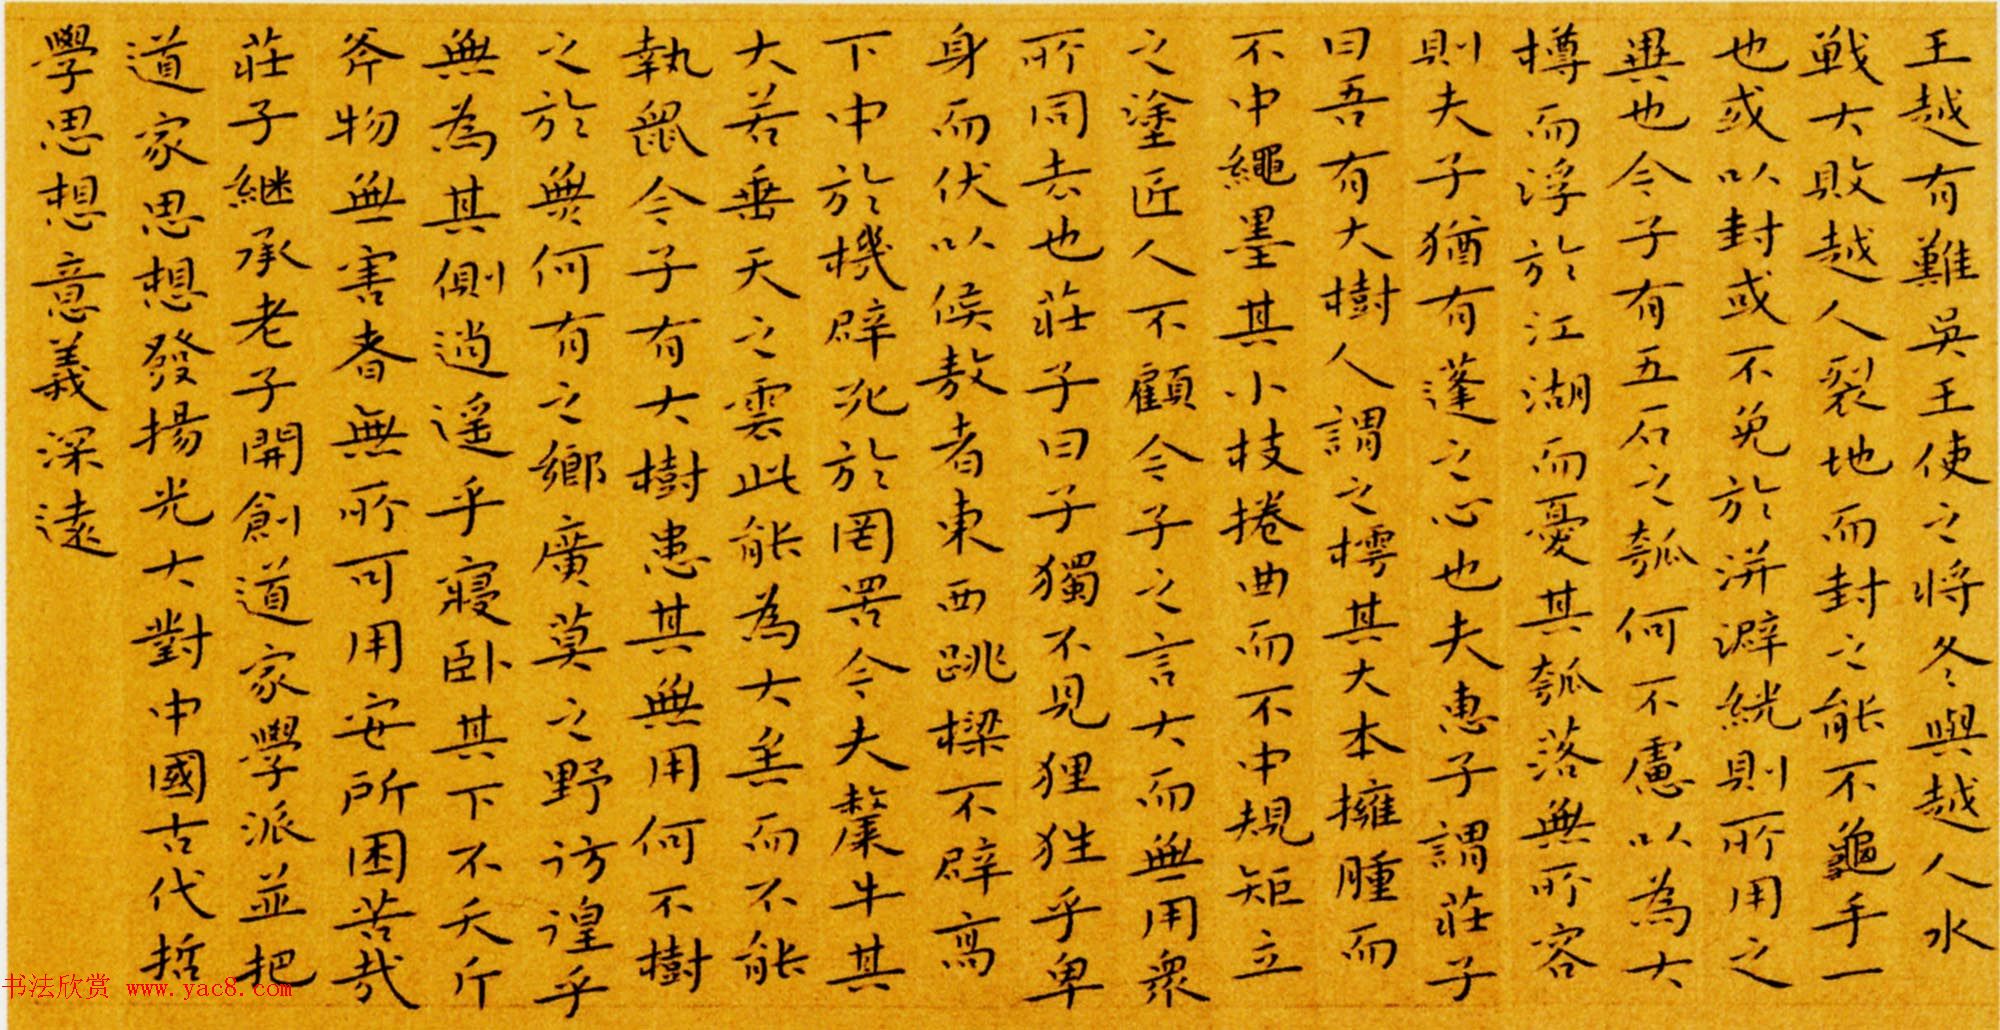 王越有難吳王使之將冬與越人水
戰大敗越人裂地而封之能不龜手一
也或以封或不免於洴澼絖則所用之
異也今子有五石之瓠何不慮以為大
樽而浮於江湖而憂其瓠落無所容
則夫子猶有蓬之心也夫惠子謂莊子
曰吾有大樹人謂之樗其大本擁腫而
不中繩墨其小枝捲曲而不中規矩立
之塗匠人不顧今子之言大而無用衆
所同去也莊子曰子獨不見狸狌乎卑
身而伏以候敖者東西跳樑不辟高
下中於機辟死於罔罟今夫斄牛其
大若垂天之雲此能為大矣而不能
執鼠今子有大樹患其無用何不樹
之於無何有之鄉廣莫之野彷徨乎
無為其側逍遥乎寢卧其下不夭斤
斧物無害者無所可用安所困苦哉
莊子継承老子開創道家學派並把
道家思想發揚光大對中國古代哲
學思想意義深遠
书法欣赏 www.yac8.com